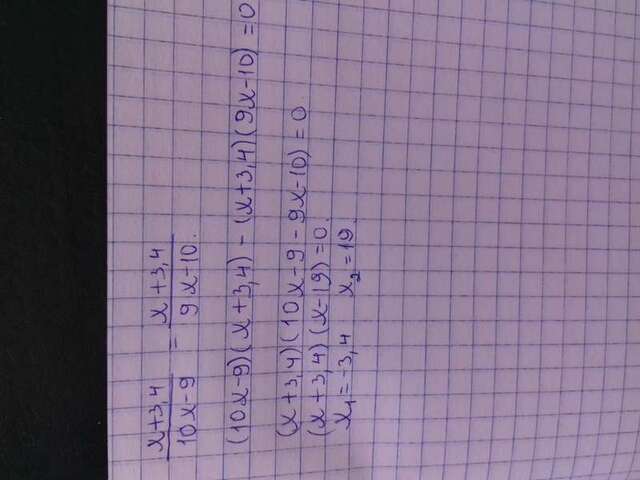 x+3,4 / 10x-9 = x+3,4 / 9x-10.
(10x-9)(x+3,4) - (x+3,4)(9x-10) = 0
(x+3,4)(10x-9-9x-10) = 0
(x+3,4)(x-19) = 0.
x₁ = -3,4 x₂ = 19.